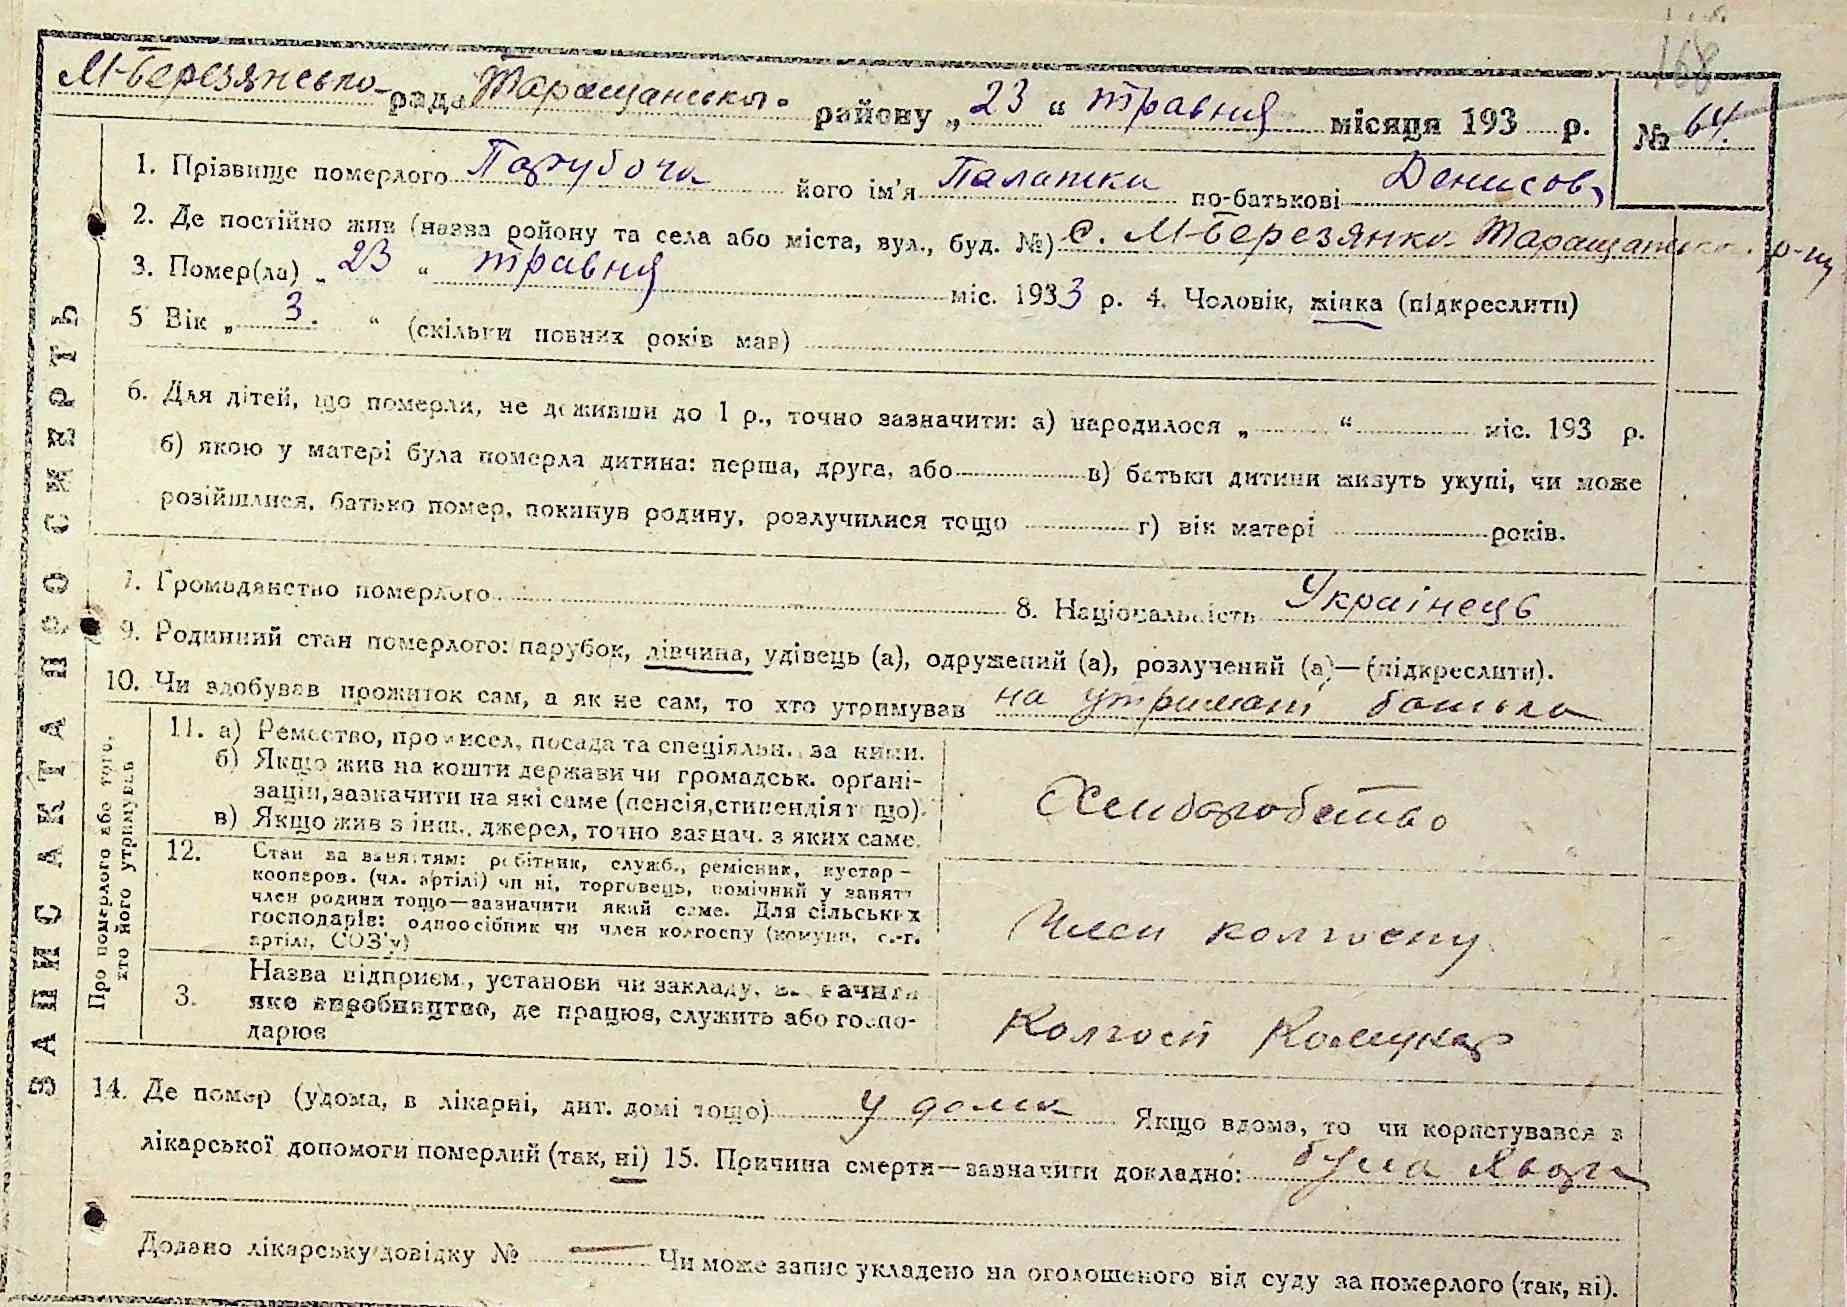 168
М-Березянсько рада Таращансько. району „23“ травня місяця 193 р. № 64.
1. Прізвище померлого Парубоча його ім'я Палашка по-батькові Денисов,
2. Де постійно жив (назва району та села або міста, вул., буд. №) с. М-Березянка Таращанськ. р-ну
3. Помер(ла) „23“ травня міс. 1933 р. 4. Чоловік, жінка (підкреслити)
5 Вік „3.“ (скільки повних років мав)
6. Для дітей, що померли, не доживши до 1 р., точно зазначити: а) народилося „ “ міс. 193 р.
б) якою у матері була померла дитина: перша, друга, або в) батьки дитини живуть укупі, чи може
розійшлися, батько помер, покинув родину, розлучилися тощо г) вік матері років.
7. Громадянство померлого 8. Національність Украінець
9. Родинний стан померлого: парубок, дівчина, удівець (а), одружений (а), розлучений (а)—(підкреслити).
10. Чи здобував прожиток сам, а як не сам, то хто утримував на утримані батька
ЗАПИС АКТА ПРО СМЕРТЬ
Про померлого або того, хто його утримував
11. а) Ремество, промисел, посада та спеціяльн. за ними.
б) Якщо жив на кошти держави чи громадськ. орґані-
зацій, зазначити на які саме (пенсія, стипендія тощо).
в) Якщо жив з інш. джерел, точно зазнач. з яких саме.
Хлиборобство
12. Стан за заняттям: робітник, служб., ремісник, кустар—
кооперов. (чл. артілі) чи ні, торговець, помічний у занятт
член родини тощо—зазначити який саме. Для сільських
господарів: одноосібник чи член колгоспу (комуни, с.-г.
артілі, СОЗ'у)
Член колгоспу
3. Назва підприєм., установи чи закладу, зазначити
яке виробництво, де працює, служить або госпо-
дарює
Колгосп Комунар
14. Де помер (удома, в лікарні, дит. домі тощо) у дома Якщо вдома, то чи користувався з
лікарської допомоги померлий (так, ні) 15. Причина смерти—зазначити докладно: була
Додано лікарську довідку № — Чи може запис укладено на оголошеного від суду за померлого (так, ні).